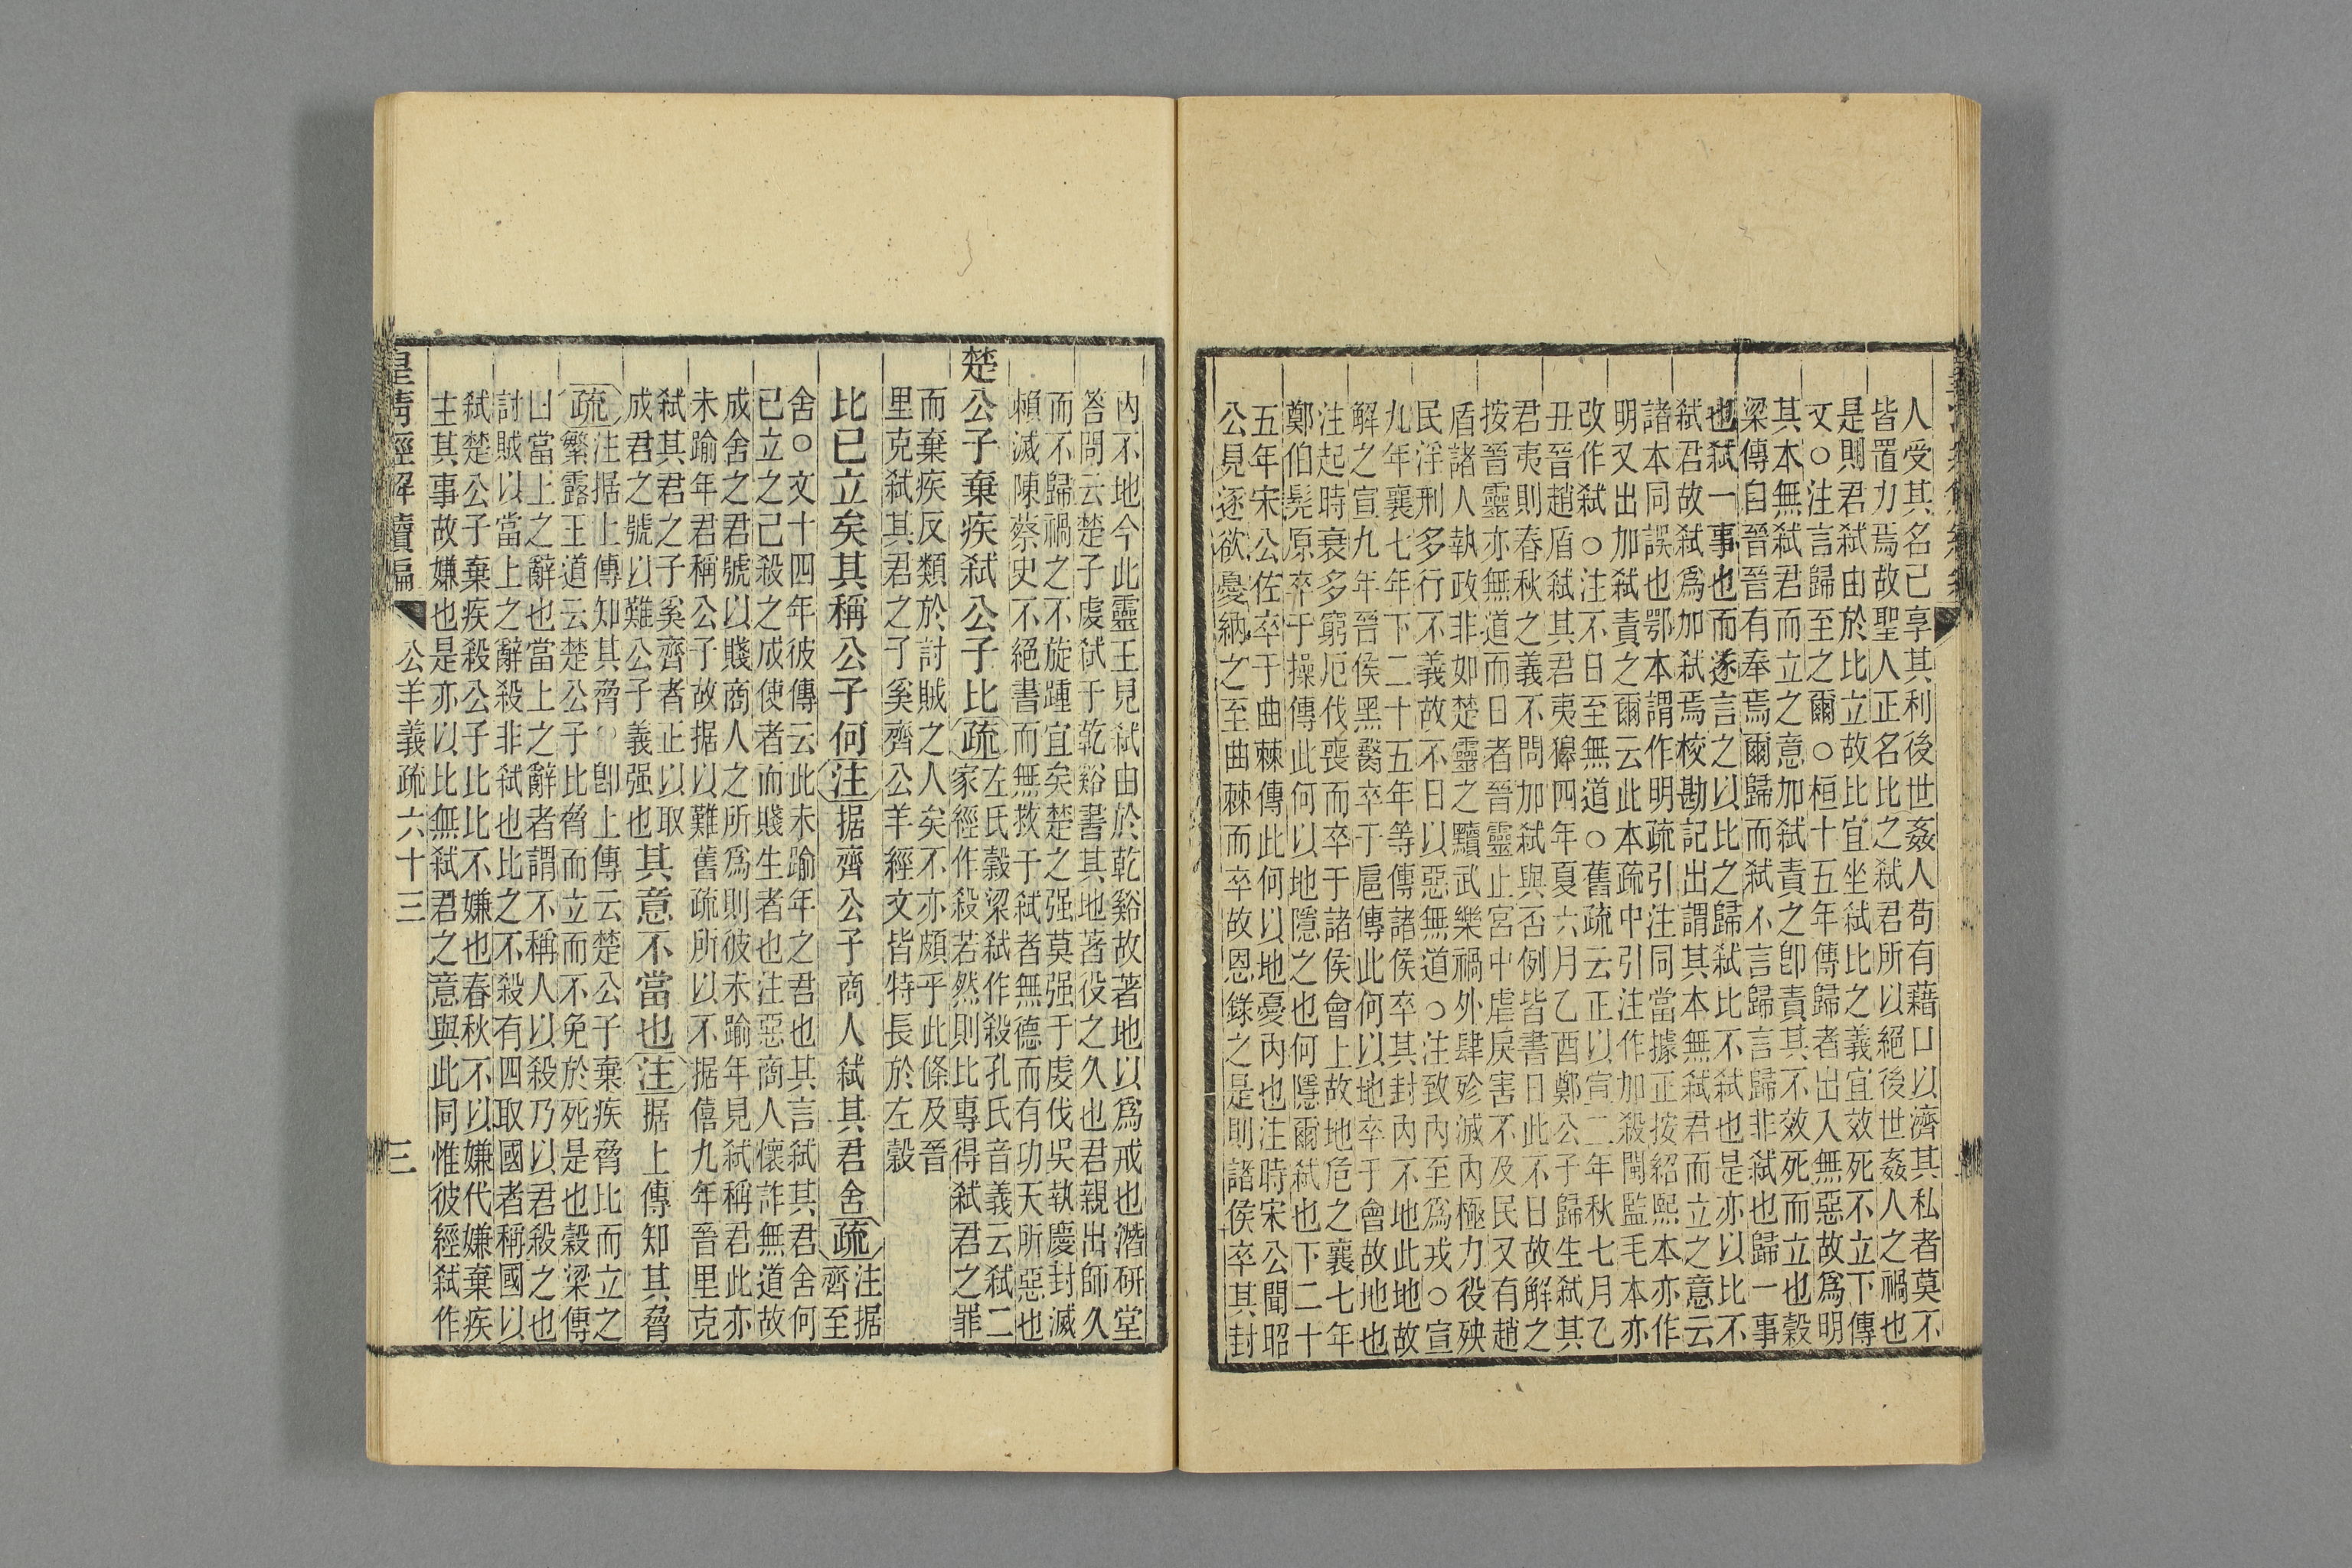 人受其名已享其利後世姦人苟有藉口以濟其私者莫不
皆置力焉故聖人正名比之弑君所以絕後世姦人之禍也
是則君弑由於比立故比宜坐弑比之義宜效死不立下傳
文○注言歸至之爾○桓十五年傳歸者出入無惡故爲明
其本無弑君而立之意加弑責之卽責其不效死而立也穀
梁傳自晉晉有奉焉爾歸而弑不言歸言歸非弑也歸一事
也弑一事也而遂言之以比之歸弑比不弑也是亦以比不
弑君故弑爲加弑焉校勘記出謂其本無弑君而立之意云
諸本同誤也鄂本謂作明疏引注同當據正按紹熙本亦作
明又出加弑責之爾云此本疏中引注作加殺閩監毛本亦
改作弑○注不日至無道○舊疏云正以宣二年秋七月乙
丑晉趙盾弑其君夷獔四年夏六月乙酉鄭公子歸生弑其
君夷則春秋之義不問加弑與否例皆書日此不日故解之
按晉靈亦無道而日者晉靈止宮中虐戾害不及民又有趙
盾諸人執政非如楚靈之黷武樂禍外肆殄滅內極力役殃
民淫刑多行不義故不日以惡無道○注致內至爲戎○宣
九年襄七年下二十五年等傳諸侯卒其封內不地此地故
解之宣九年晉侯黑臋卒于扈傳此何以地卒于會故地也
注起時衰多窮厄伐喪而卒于諸侯會上故地危之襄七年
鄭伯髡原卒于操傳此何以地隱之也何隱爾弑也下二十
五年宋公佐卒于曲棘傳此何以地憂內也注時宋公聞昭
公見逐欲憂納之至曲棘而卒故恩錄之是則諸侯卒其封
內不地今此靈王見弑由於乾谿故著地以爲戒也潛研堂
荅問云楚子虔弑于乾谿書其地著役之久也君親出師久
而不歸禍之不旋踵宜矣楚之强莫强于虔伐吳執慶封滅
賴滅陳蔡史不絕書而無救于弑者無德而有功天所惡也
楚公子棄疾弑公子比疏左氏穀梁弑作殺孔氏音義云弑二
家經作殺若然則比專得弑君之罪
而棄疾反類於討賊之人矣不亦頗乎此條及晉
里克弑其君之子奚齊公羊經文皆特長於左穀
比已立矣其稱公子何注据齊公子商人弑其君舍疏注据
齊至
舍○文十四年彼傳云此未踰年之君也其言弑其君舍何
已立之已殺之成使者而賤生者也注惡商人懷詐無道故
成舍之君號以賤商人之所爲則彼未踰年見弑稱君此亦
未踰年君稱公子故据以難舊疏所以不据僖九年晉里克
弑其君之子奚齊者正以取
成君之號以難公子義强也其意不當也注据上傳知其脅
疏注据上傳知其脅○卽上傳云楚公子棄疾脅比而立之
繁露王道云楚公子比脅而立而不免於死是也穀梁傳
曰當上之辭也當上之辭者謂不稱人以殺乃以君殺之也
討賊以當上之辭殺非弑也比之不殺有四取國者稱國以
弑楚公子棄疾殺公子比比不嫌也春秋不以嫌代嫌棄疾
主其事故嫌也是亦以比無弑君之意與此同惟彼經弑作
皇淸經解續編 公羊義疏六十三 三